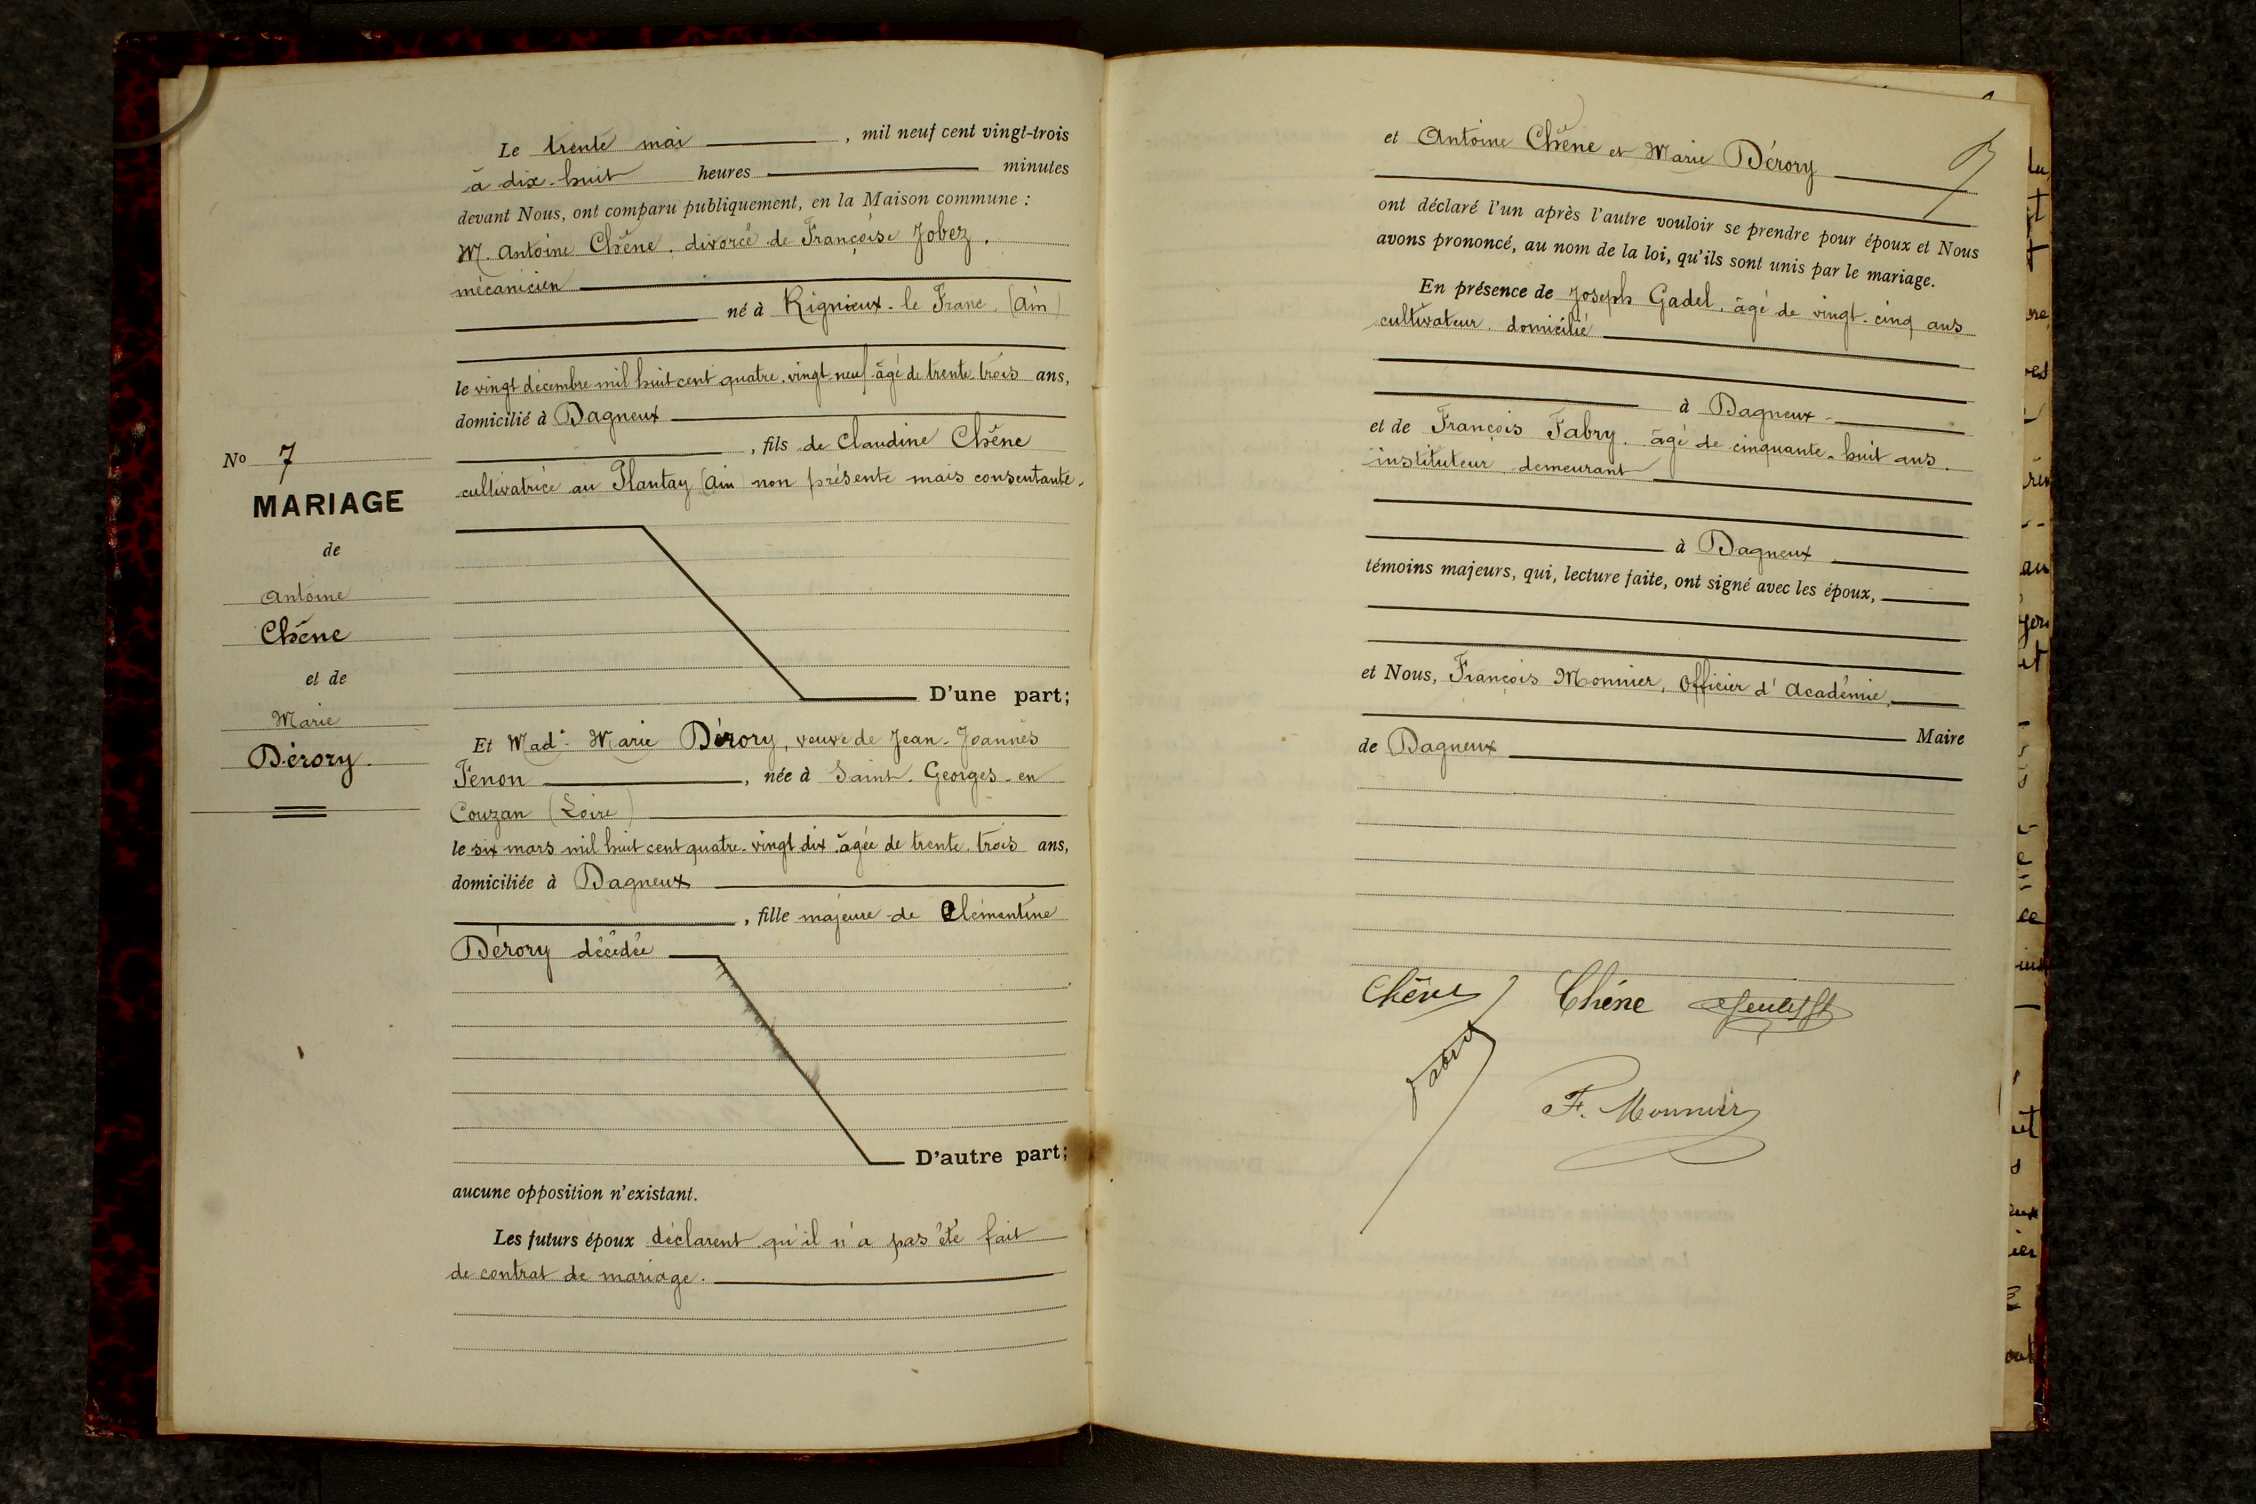 Le trente mai , mil neuf cent vingt-trois
à dix-huit heures minutes
devant Nous, ont comparu publiquement, en la Maison commune :
M. Antoine Chêne, divorcé de Françoise Jobez,
mécanicien
né à Rignieux-le Franc (Ain)
le vingt décembre mil huit cent quatre-vingt neuf âgé de trente-trois ans,
domicilié à Dagneux
, fils de Claudine Chêne
cultivatrice au Plantay (Ain) non présente mais consentante.
No 7
MARIAGE
de
Antoine
Chêne
et de
Marie
Dérory.
D'une part;
Et Made Marie Dérory, veuve de Jean-Joannès
Fénon , née à Saint-Georges-en
Couzan (Loire)
le six mars mil huit cent quatre-vingt dix âgée de trente-trois ans,
domiciliée à Dagneux
, fille majeure de Clémentine
Dérory décédée
D'autre part;
aucune opposition n'existant.
Les futurs époux déclarent qu'il n'a pas été fait
de contrat de mariage.
et Antoine Chêne et Marie Dérory
ont déclaré l'un après l'autre vouloir se prendre pour époux et Nous
avons prononcé, au nom de la loi, qu'ils sont unis par le mariage.
En présence de Joseph Gadel, âgé de vingt-cinq ans
cultivateur domicilié
à Dagneux
et de François Fabry, âgé de cinquante-huit ans.
instituteur demeurant
à Dagneux
témoins majeurs, qui, lecture faite, ont signé avec les époux,
et Nous, François Monnier, Officier d'Académie,
Maire
de Dagneux
Chêne Chêne
Fabry
F. Monnier